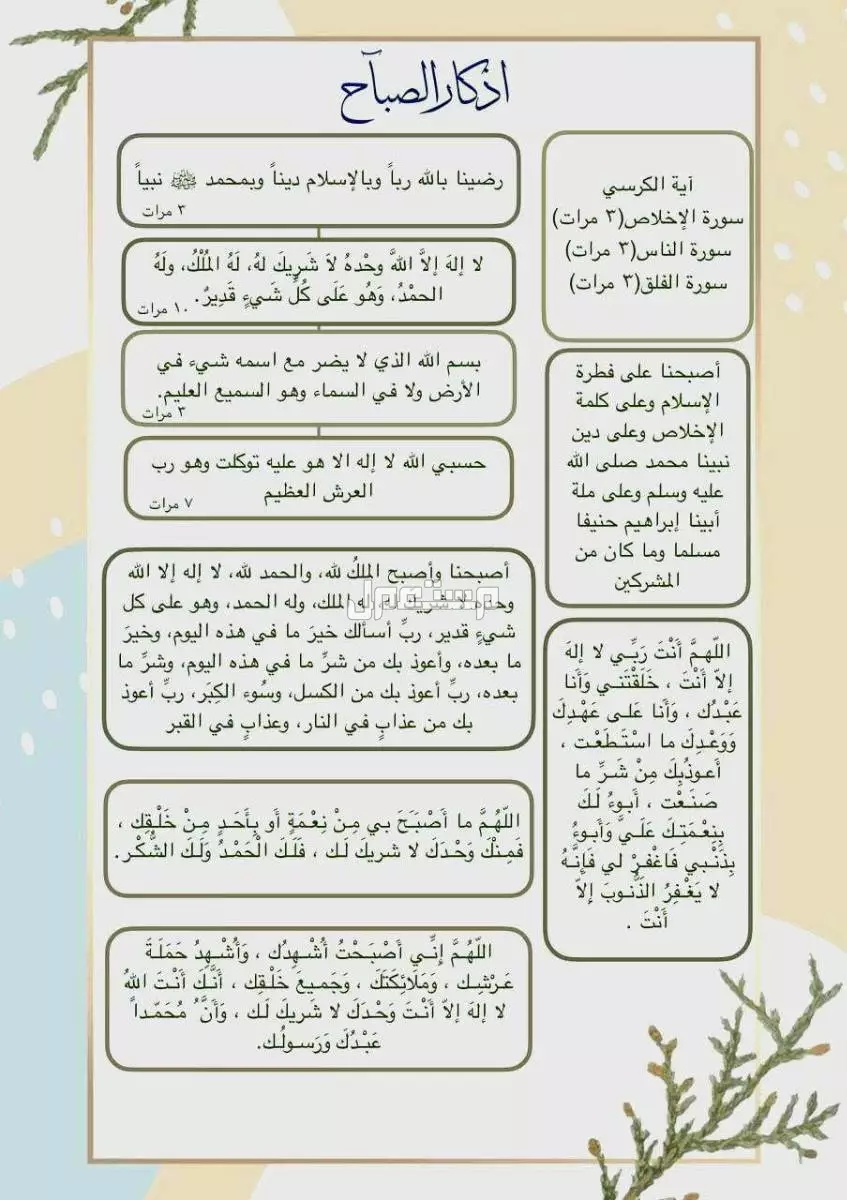 اذكار الصباح
آية الكرسي
سورة الإخلاص(٣ مرات)
سورة الناس(٣ مرات)
سورة الفلق(٣ مرات)
أصبحنا على فطرة
الإسلام وعلى كلمة
الإخلاص وعلى دين
نبينا محمد صلى الله
عليه وسلم وعلى ملة
أبينا إبراهيم حنيفا
مسلما وما كان من
المشركين
اللّهـمَّ أَنْتَ رَبِّـي لا إلهَ
إلاّ أَنْتَ ، خَلَقْتَنـي وَأَنا
عَبْـدُك ، وَأَنا عَلـى عَهْـدِكَ
وَوَعْـدِكَ ما اسْتَـطَعْـت ،
أَعـوذُبِكَ مِنْ شَـرِّ ما
صَنَـعْت ، أَبـوءُ لَـكَ
بِنِعْـمَتِـكَ عَلَـيَّ وَأَبـوءُ
بِذَنْـبي فَاغْفـِرْ لي فَإِنَّـهُ
لا يَغْـفِرُ الذُّنـوبَ إِلاّ
أَنْتَ .
رضينا بالله رباً وبالإسلام ديناً وبمحمد ﷺ نبياً
٣ مرات
لا إلهَ إلاَّ اللَّهُ وحْدهُ لاَ شَرِيكَ لهُ، لَهُ المُلْكُ، ولَهُ
الحمْدُ، وَهُو عَلَى كُلِّ شَيءٍ قَدِيرٌ.
١٠ مرات
بسم الله الذي لا يضر مع اسمه شيء في
الأرض ولا في السماء وهو السميع العليم.
٣ مرات
حسبي الله لا إله الا هو عليه توكلت وهو رب
العرش العظيم
٧ مرات
أصبحنا وأصبح الملكُ لله، والحمد لله، لا إله إلا الله
وحده لا شريك له، له الملك، وله الحمد، وهو على كل
شيءٍ قدير، ربِّ أسألك خيرَ ما في هذه اليوم، وخيرَ
ما بعده، وأعوذ بك من شرِّ ما في هذه اليوم، وشرِّ ما
بعده، ربِّ أعوذ بك من الكسل، وسُوء الكِبَر، ربِّ أعوذ
بك من عذابٍ في النار، وعذابٍ في القبر
مستعمل
اللّهُـمَّ ما أَصْبَـَحَ بي مِـنْ نِعْـمَةٍ أَو بِأَحَـدٍ مِـنْ خَلْـقِك ،
فَمِـنْكَ وَحْـدَكَ لا شريكَ لَـك ، فَلَـكَ الْحَمْـدُ وَلَـكَ الشُّكْـر.
اللّهُـمَّ إِنِّـي أَصْبَـحْتُ أُشْـهِدُك ، وَأُشْـهِدُ حَمَلَـةَ
عَـرْشِـك ، وَمَلَائِكَتَكَ ، وَجَمـيعَ خَلْـقِك ، أَنَّـكَ أَنْـتَ اللهُ
لا إلهَ إلاّ أَنْـتَ وَحْـدَكَ لا شَريكَ لَـك ، وَأَنَّ ُ مُحَمّـداً
عَبْـدُكَ وَرَسـولُـك.